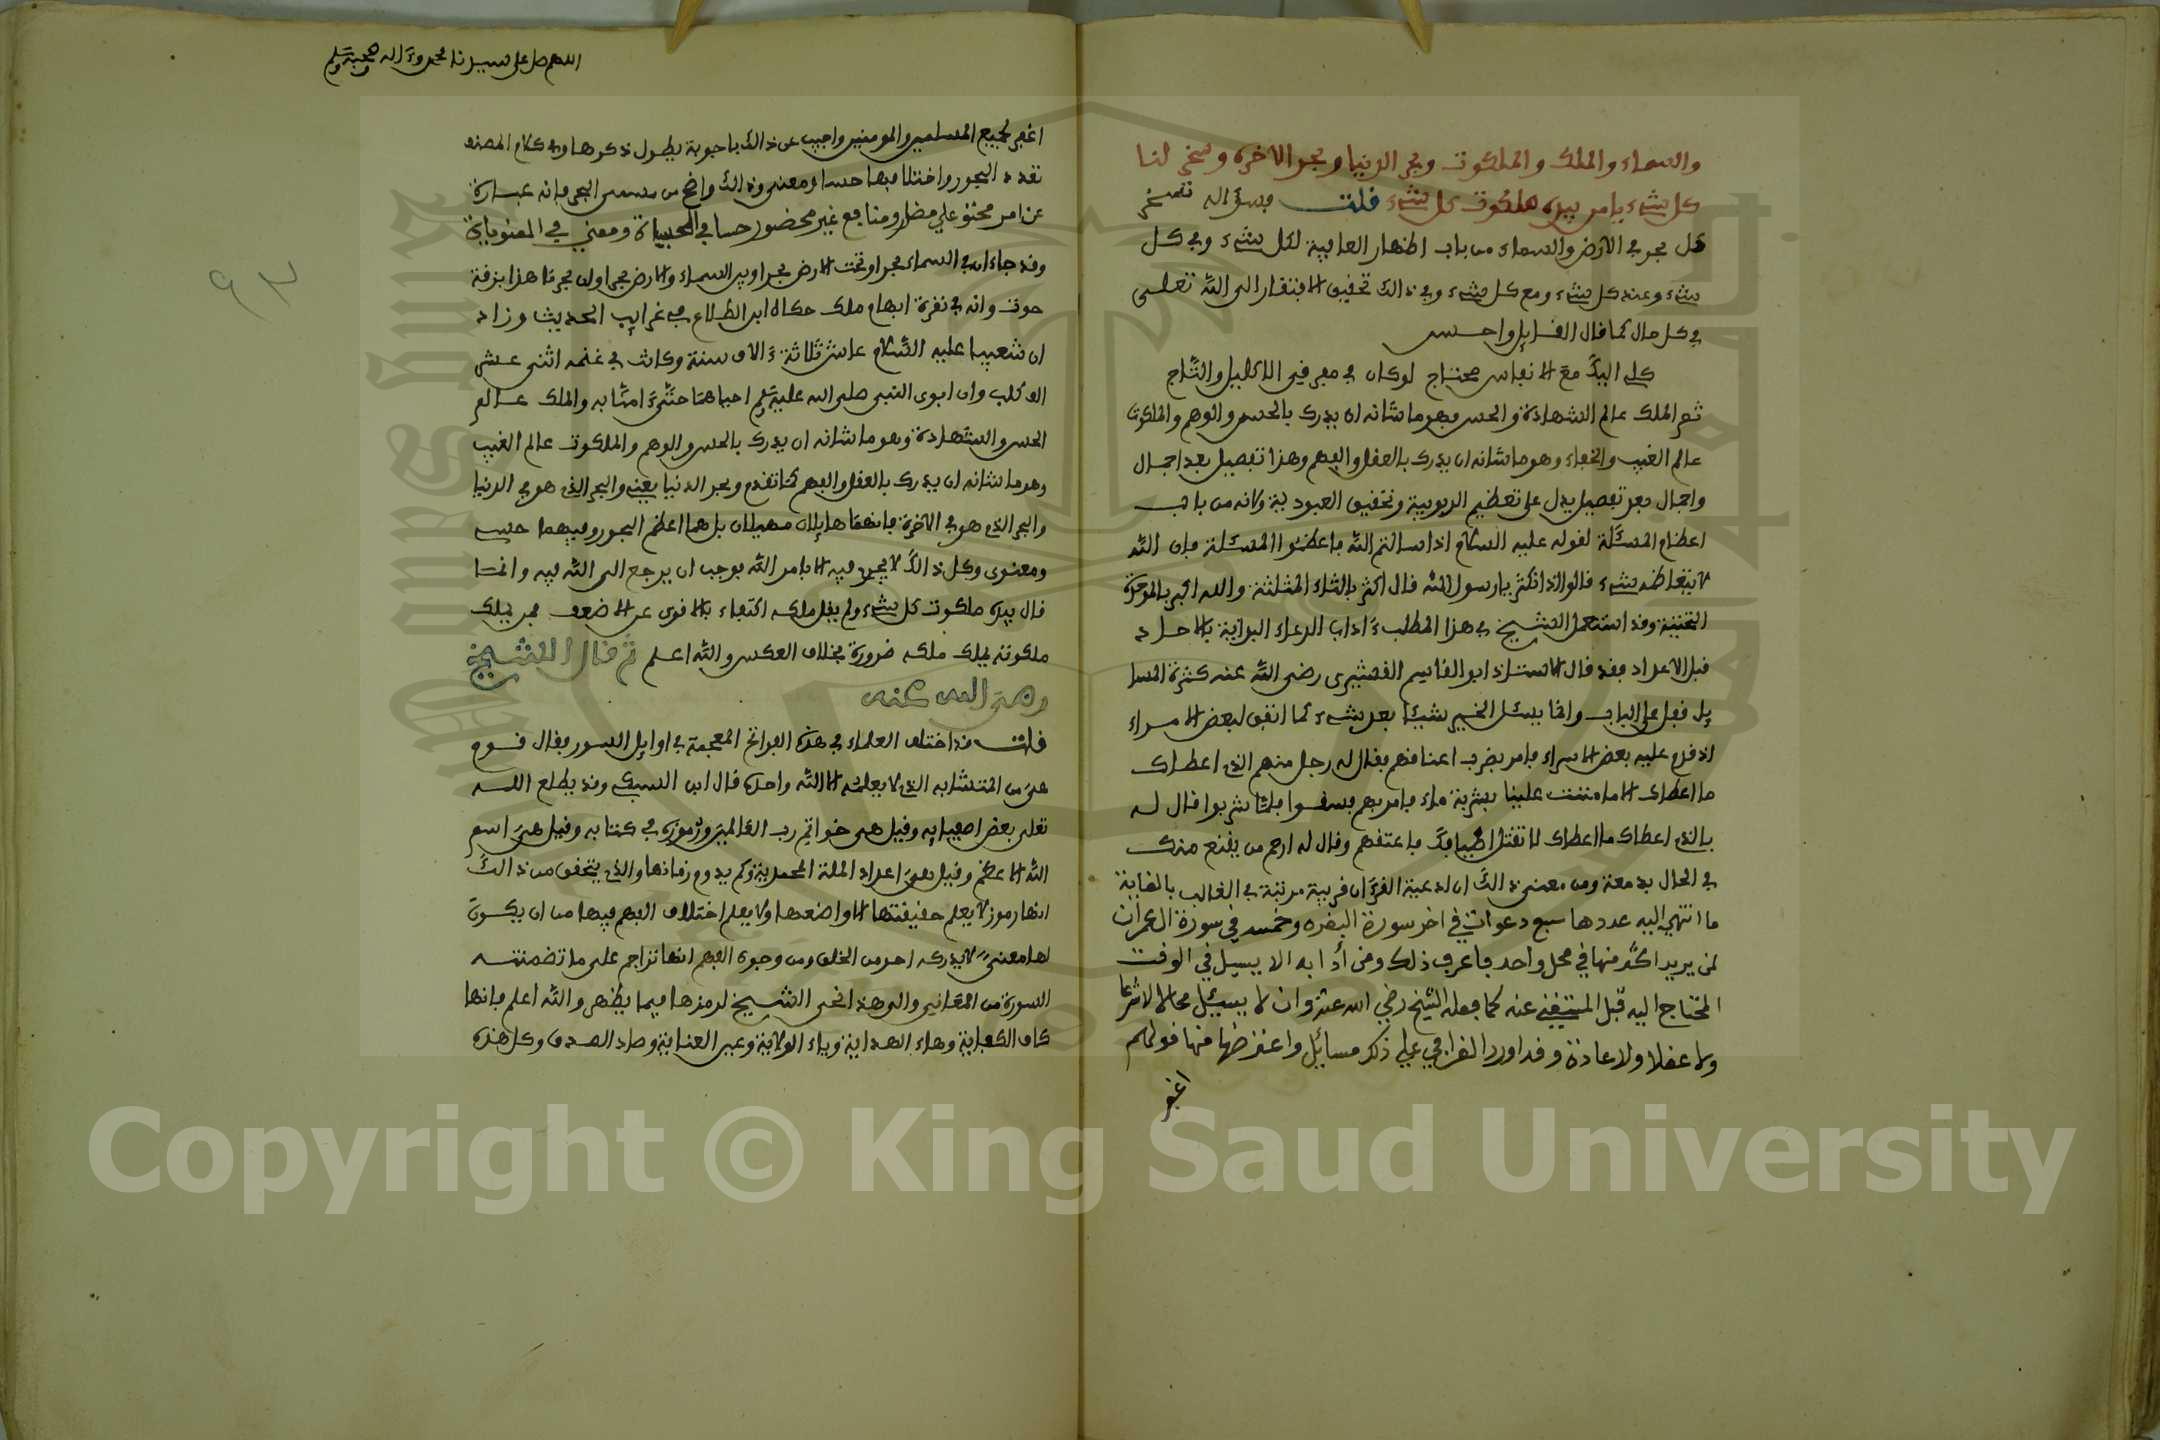 والسماء والملك والملكوت وبحر الدنيا وبحر الاخرة وسخر لنا
كل شيء يا من بيده ملكوت كل شيء قلت وسؤاله تسخير
كل بحر في الارض والسماء من باب اظهار العافية لكل شيء وفي كل
شيء وعند كل شيء ومع كل شيء وفي ذالك تحقيق الافتقار الى الله تعلى
في كل حال كما قال القايل واحسن
كلي اليك مع الانفاس محتاج لو كان في مفرقي الاكليل والتاج
ثم الملك عالم الشهادة والحس وهو ما شانه ان يدرك بالحس والوهم والملكوت
عالم الغيب والخفاء وهو ما شانه ان يدرك بالعقل والفهم وهذا تفصيل بعد اجمال
واجمال بعد تفصيل يدل على تعظيم الربوبية وتحقيق العبودية ولانه من باب
اعظام المسئلة لقوله عليه السلام اذا سالتم الله فاعظموا المسئلة فان الله
لا يتعاظمه شيء قالوا اذا نكثر يا رسول الله قال اكثر بالثاء المثلثة والله اكبر بالموحدة
التحتية وقد استعمل الشيخ في هذا المطلب ءاداب الدعاء البداية بالاحاد
قبل الاعداد فقد قال الاستاذ ابو القاسم القشيري رضي الله عنه كثرة المسا
يل قفل على الباب وانما يسئل الخير شيئا بعد شيء كما اتفق لبعض الامراء
اذ قدم عليه بعض الاسراء فامر بضرب اعناقهم فقال له رجل منهم الذي اعطاك
ما اعطاك الا ما مننت علينا بشربة ماء فامر بهم فسقوا فلما شربوا قال له
بالذي اعطاك ما اعطاك لا تقتل اضيافك فاعتقهم وقال له ارحم من يقنع منك
في الحال بدمعة ومن معنى ذالك ان ادعية القرءان قريبة مرتبة في الغالب بالغاية
ما انتهى اليه عددها سبع دعوات في اخر سورة البقره وخمسه في سورة ال عمران
لمن يريد اكثر منها في محل واحد فاعرف ذلك ومن أدابه الا يسيل في الوقت
المحتاج اليه قبل المستغني عنه كما فعله الشيخ رضي الله عنه وان لا يسئل محالا لا شرعا
ولا عقلا ولا عادة وقد اورد القرافي على ذلك مسائل واعترضها منها قولهم
اغفر
اللهم صل على سيدنا محمد وءاله وصحبه وسلم
اغفر لجميع المسلمين والمومنين واجيب عن ذالك باجوبة يطول ذكرها وفي كلام المصنف
تعدد البحور واختلافها حسا ومعنى وذالك واضح من مسمى البحر فانه عبارة
عن امر محتو على مضار ومنافع غير محصور حسا في الحسيات ومعنى في المعنويات
وقد جاء ان في السماء بحرا وتحت الارض بحرا وبين السماء والارض بحرا وان بحرنا هذا بزقة
حوت وانه في نقرة ابهام ملك حكاه ابن الطلاع في غرايب الحديث وزاد
ان شعيبا عليه السلام عاش ثلاثة ءالاف سنة وكانت في غنمه اثنى عشر
الف كلب وان ابوى النبي صلى الله عليه وسلم احياهما حتى ءامنا به والملك عالم
الحس والشهادة وهو ما شانه ان يدرك بالحس والوهم والملكوت عالم الغيب
وهو ما شانه ان يدرك بالعقل والفهم كما تقدم وبحر الدنيا يعني والبحر الذي هو في الدنيا
والبحر الذي هو في الاخرة فانهما هايلان مهيلان بل هما اعظم البحور وفيهما حسي
ومعنوى وكل ذالك لا يجرى فيه الا بامر الله يوجب ان يرجع الى الله فيه وانما
قال بيده ملكوت كل شيء ولم يقل ملكه اكتفاء بالاقوى عن الاضعف فمن يملك
ملكوته يملك ملكه ضرورة بخلاف العكس والله اعلم ثم قال الشيخ
رضي الله عنه
قلت قد اختلف العلماء في هذه الفواتح المعجمة في اوايل السور فقال قوم
هي من المتشابه الذي لا يعلمه الا الله واحده قال ابن السبكي وقد يطلع الله
تعلى بعض اصفيايه وقيل هي خواتم رب العالمين ورموزه في كتابه وقيل هي اسم
الله الاعظم وقيل هي اعداد الملة المحمدية وكم يدوم زمانها والذي يتحقق من ذالك
انها رموز لا يعلم حقيقتها الا واضعها ولا يعلم اختلاف الفهم فيها من ان يكون
لها معنى لا يدركه احد من الخلق ومن وجوه الفهم انها تراجم على ما تضمنته
السورة من المعاني والى هذا انحى الشيخ لرمزها فيما يظهر والله اعلم فانها
كاف الكفاية وهاء الهداية وياء الولاية وعين العناية وصاد الصدق وكل هذه
٩٣
Copyright © King Saud University